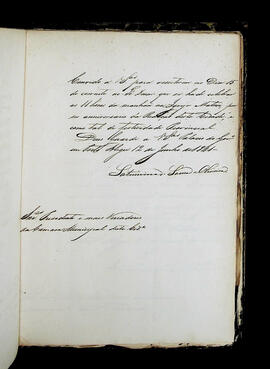 Convido a V.Sªs para assistirem no Dia 15
do corrente ao Te Deum que se ha de celebrar
as 11 horas da manhãa na Igreja Matriz, por
ser anniversario da
e como tal de festividade Provincial.
Deus Guarde a V.Sªs Palacio do Govº
em Porto Alegre 12 de Junho de 1841.
Saturnino de Souza e Oliveira
Snrs Presidente e mais Vereadores
da Camara Municipal desta Cidᵉ